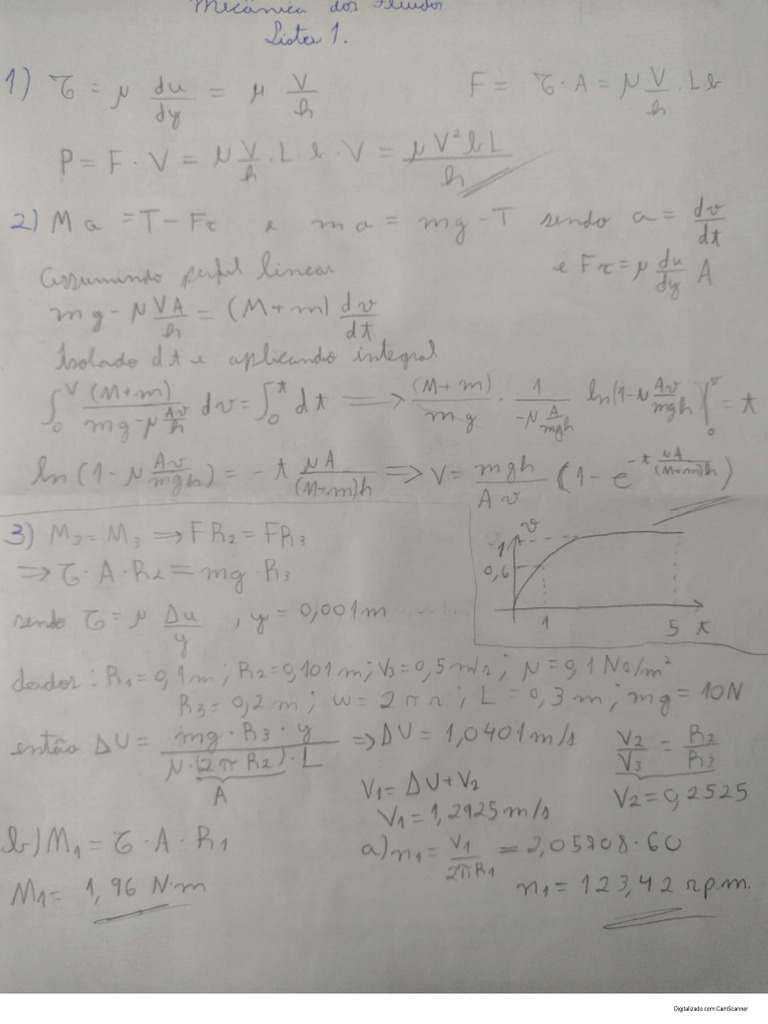 Mecânica dos Fluidos
Lista 1.
1) τ = μ du/dy = μ V/h    F = τ·A = μ V/h · Lb
P = F·V = μ V/h · L · b · V = μV²bL/h
2) Ma = T - Fτ e ma = mg - T sendo a = dv/dt
Assumindo perfil linear    e Fτ = μ du/dy A
mg - μ VA/h = (M+m) dv/dt
Isolado dt e aplicando integral
∫₀^V (M+m)/(mg - μ Av/h) dv = ∫₀^t dt ⟹ (M+m)/mg · 1/(-μ A/mgh) ln(1-μ Av/mgh)|₀^v = t
ln(1-μ Av/mgh) = -t μA/(M+m)h ⟹ V = mgh/Av (1 - e^(-t μA/(M+m)h))
v
1
0,6
1 5 t
3) M₂ = M₃ ⟹ FR₂ = FR₃
⟹ τ·A·R₂ = mg·R₃
sendo τ = μ Δu/y , y = 0,001m
dados: R₁ = 0,1m; R₂ = 0,101m; V₃ = 0,5m/s; μ = 0,1 Ns/m²
R₃ = 0,2m; w = 2πn; L = 0,3m; mg = 10N
então ΔU = mg·R₃·y/(μ·(2πR₂)·L) ⟹ ΔU = 1,0401m/s    V₂/V₃ = R₂/R₃
A    V₁ = ΔU + V₂    V₂ = 0,2525
V₁ = 1,2925m/s
b) M₁ = τ·A·R₁    a) n₁ = V₁/2πR₁ = 2,05708·60
M₁ = 1,96 N·m    n₁ = 123,42 rp.m.
Digitalizado com CamScanner